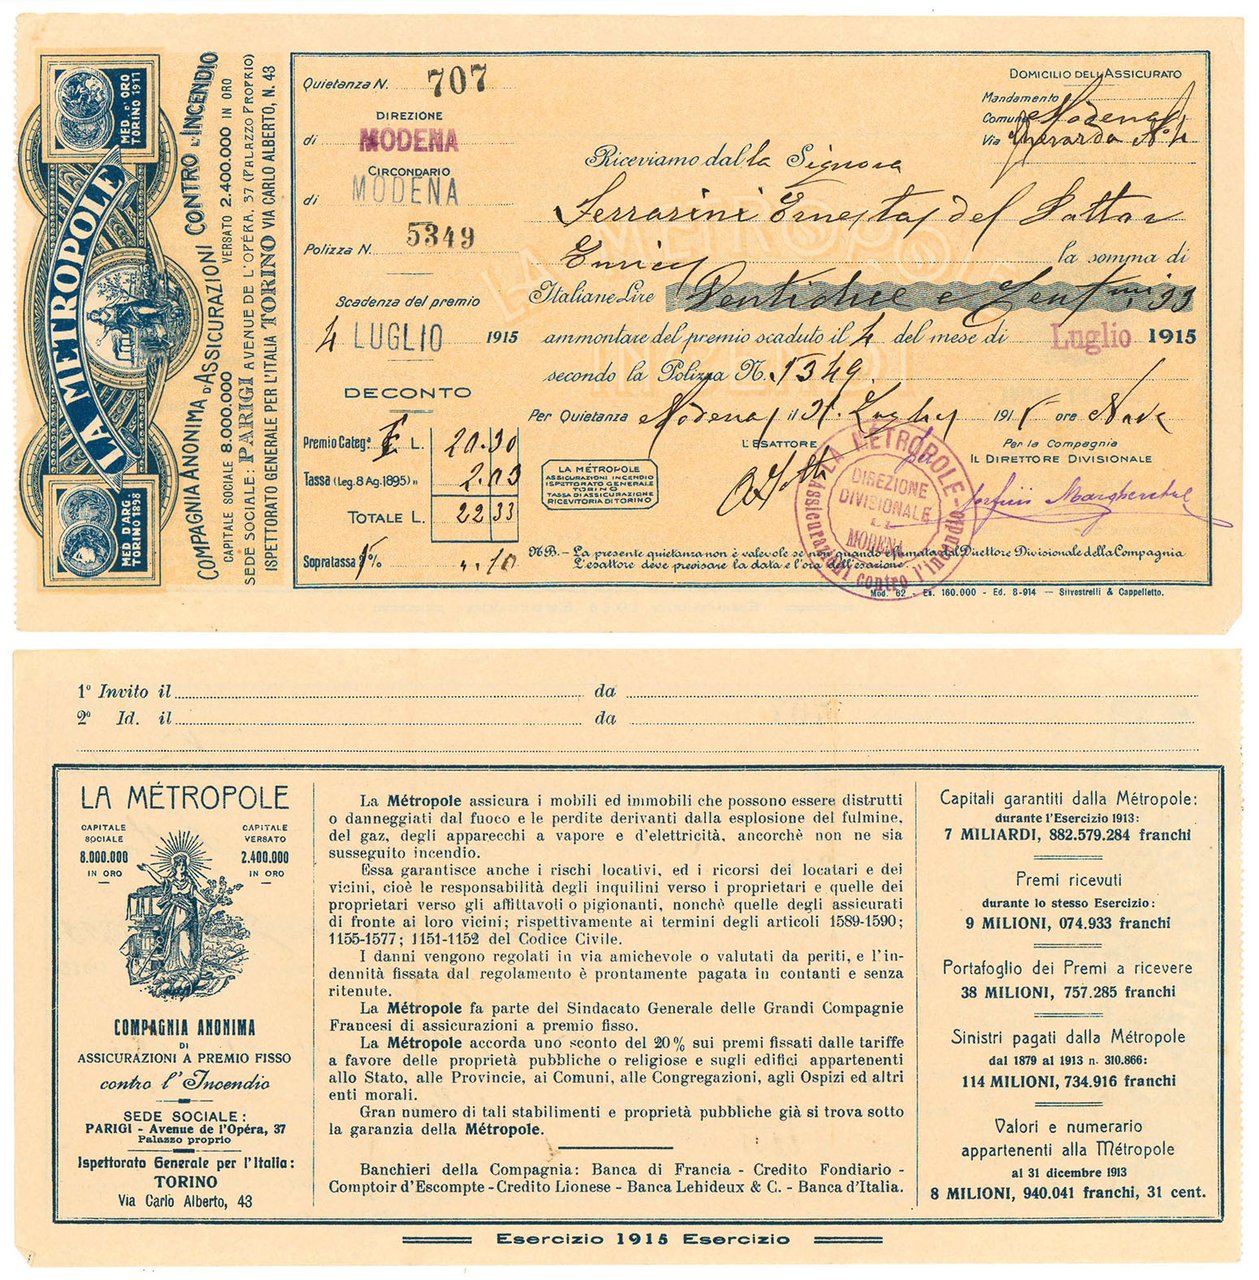 MED. D'ORO
TORINO 1911
LA METROPOLE
MED. D'ARG.
TORINO 1898
COMPAGNIA ANONIMA D'ASSICURAZIONI CONTRO L'INCENDIO
CAPITALE SOCIALE 8.000.000 VERSATO 2.400.000 IN ORO
SEDE SOCIALE: PARIGI AVENUE DE L'OPÉRA, 37 (PALAZZO PROPRIO)
ISPETTORATO GENERALE PER L'ITALIA TORINO VIA CARLO ALBERTO, N. 43
Quietanza N. 707
DIREZIONE
di MODENA
CIRCONDARIO
di MODENA
Polizza N. 5349
Scadenza del premio
4 LUGLIO 1915
DECONTO
Premio Categ.ª I L. 20.30
Tassa (Leg. 8 Ag. 1895) „ 2.03
TOTALE L. 22 33
Sopratassa 5 % „ . 10
DOMICILIO DELL'ASSICURATO
Mandamento
Comune Modena
Via
Riceviamo dalla Signora
Ferrarini Ernesta del Dottor
Enrico la somma di
Italiane Lire Ventidue e Cent.mi 33
ammontare del premio scaduto il 4 del mese di Luglio 1915
secondo la Polizza N. 5349
Per Quietanza Modena il 31 Luglio 1915 ore Nove
L'ESATTORE
Per la Compagnia
IL DIRETTORE DIVISIONALE
LA MÉTROPOLE
ASSICURAZIONI INCENDIO
ISPETTORATO GENERALE
TORINO
TASSA DI ASSICURAZIONE
RICEVITORIA DI TORINO
LA MÉTROPOLE
Assicurazioni contro l'incendio
DIREZIONE
DIVISIONALE
MODENA
N.B. – La presente quietanza non è valevole se non quando è firmata dal Direttore Divisionale della Compagnia
L'esattore deve precisare la data e l'ora dell'esazione.
Mod. 62 . Es. 160.000 - Ed. 8-914 — Silvestrelli & Cappelletto.
1º Invito il da
2º Id. il da
LA MÉTROPOLE
CAPITALE
SOCIALE
8.000.000
IN ORO
CAPITALE
VERSATO
2.400.000
IN ORO
COMPAGNIA ANONIMA
DI
ASSICURAZIONI A PREMIO FISSO
contro l'Incendio
SEDE SOCIALE:
PARIGI - Avenue de l'Opéra, 37
Palazzo proprio
Ispettorato Generale per l'Italia:
TORINO
Via Carlo Alberto, 43
La Métropole assicura i mobili ed immobili che possono essere distrutti
o danneggiati dal fuoco e le perdite derivanti dalla esplosione del fulmine,
del gaz, degli apparecchi a vapore e d'elettricità, ancorchè non ne sia
susseguito incendio.
Essa garantisce anche i rischi locativi, ed i ricorsi dei locatari e dei
vicini, cioè le responsabilità degli inquilini verso i proprietari e quelle dei
proprietari verso gli affittavoli o pigionanti, nonchè quelle degli assicurati
di fronte ai loro vicini; rispettivamente ai termini degli articoli 1589-1590;
1155-1577; 1151-1152 del Codice Civile.
I danni vengono regolati in via amichevole o valutati da periti, e l'in-
dennità fissata dal regolamento è prontamente pagata in contanti e senza
ritenute.
La Métropole fa parte del Sindacato Generale delle Grandi Compagnie
Francesi di assicurazioni a premio fisso.
La Métropole accorda uno sconto del 20% sui premi fissati dalle tariffe
a favore delle proprietà pubbliche o religiose e sugli edifici appartenenti
allo Stato, alle Provincie, ai Comuni, alle Congregazioni, agli Ospizi ed altri
enti morali.
Gran numero di tali stabilimenti e proprietà pubbliche già si trova sotto
la garanzia della Métropole.
Banchieri della Compagnia: Banca di Francia - Credito Fondiario -
Comptoir d'Escompte - Credito Lionese - Banca Lehideux & C. - Banca d'Italia.
Capitali garantiti dalla Métropole:
durante l'Esercizio 1913:
7 MILIARDI, 882.579.284 franchi
Premi ricevuti
durante lo stesso Esercizio:
9 MILIONI, 074.933 franchi
Portafoglio dei Premi a ricevere
38 MILIONI, 757.285 franchi
Sinistri pagati dalla Métropole
dal 1879 al 1913 n. 310.866:
114 MILIONI, 734.916 franchi
Valori e numerario
appartenenti alla Métropole
al 31 dicembre 1913
8 MILIONI, 940.041 franchi, 31 cent.
Esercizio 1915 Esercizio